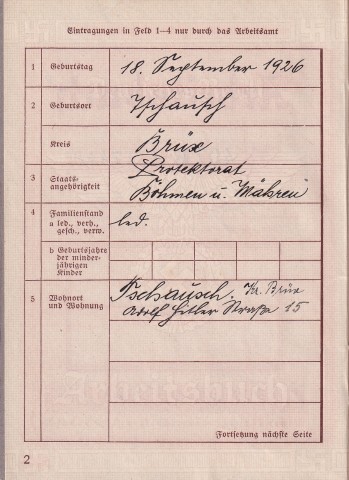 Eintragungen in Feld 1–4 nur durch das Arbeitsamt
1 Geburtstag 18. September 1926
2 Geburtsort Tschausch
Kreis Brüx
3 Staats-
angehörigkeit Protektorat
Böhmen u. Mähren
4 Familienstand
a led., verh.,
gesch., verw. led.
b Geburtsjahre
der minder-
jährigen
Kinder
5 Wohnort
und Wohnung Tschausch. Kr. Brüx
Adolf Hitler Straße 15
Fortsetzung nächste Seite
2